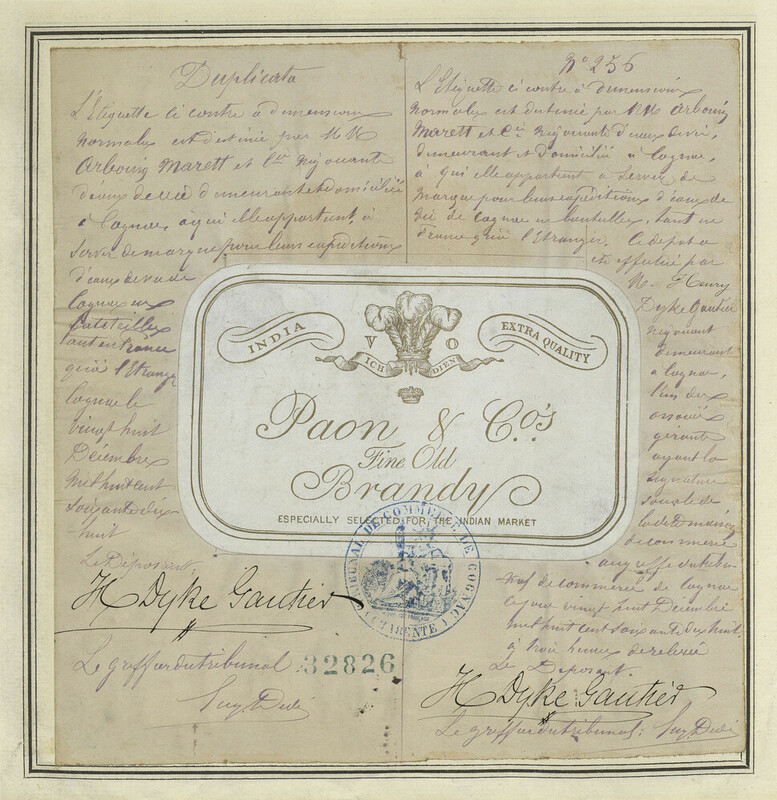 Duplicata
L'Etiquette ci contre à dimensions
normales est destinée par MM
Arbouin Marett et Cie Négociants
d'eaux de vie demeurant et domiciliés
à Cognac, à qui elle appartient, à
servir de marque pour leurs expéditions
d'eaux de vie de
Cognac en
bouteilles
tant en France
qu'à l'Etranger
Cognac le
vingt huit
Décembre
mil huit cent
soixante dix
huit
Le Déposant,
H Dyke Gautier
Le greffier du tribunal
32826
No 256
L'Etiquette ci contre à dimensions
normales est destinée par MM Arbouin
Marett et Cie Négociants d'eaux de vie,
demeurant et domiciliés à Cognac,
à qui elle appartient à servir de
marque pour leurs expéditions d'eaux de
vie de Cognac en bouteilles, tant en
France qu'à l'Etranger. Le dépot a
été effectué par
M. Henry
Dyke Gautier
négociant
demeurant
à Cognac,
l'un des
associés
gérants
ayant la
signature
sociale de
la dite maison
de commerce
au greffe du tribu-
nal de commerce de Cognac
ce jour vingt huit Décembre
mil huit cent soixante dix huit,
à trois heures de relevée
Le Déposant.
H Dyke Gautier
Le greffier du tribunal:
INDIA
V O
EXTRA QUALITY
ICH DIEN
Paon & Co's
Fine Old
Brandy
ESPECIALLY SELECTED FOR THE INDIAN MARKET
TRIBUNAL DE COMMERCE DE COGNAC
(CHARENTE)